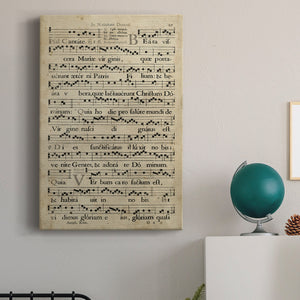 In Nativitate Domini.
Cantate. B Eata vis
cera Mariæ virginis, quæ porta-
verunt æterni Patris Filium: & be-
ata ubera, quæ lactaverunt Christum Dó
minum: Quia ho die pro salúte mundi de
Virgine nasci dignatus est.
Dies sanctificatus illuxit no bis: ve
nite Gentes, & adoráte Dó minum.
Quia. V Er bum caro factum est,
& habitá vit in no bis. Et
vidimus glóriam e ius, glóriam quasi